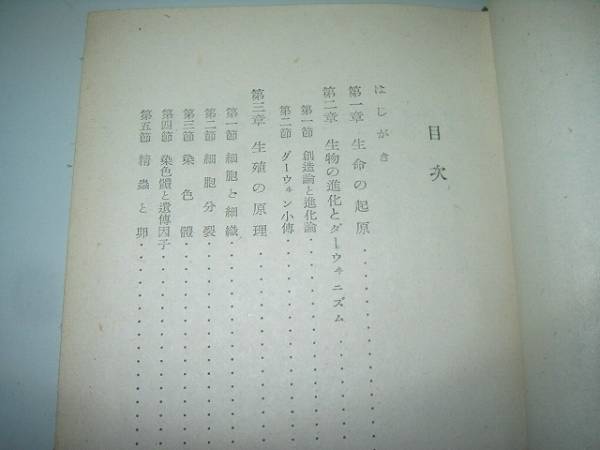 目次
はしがき
第一章 生命の起原
第二章 生物の進化とダーウヰニズム
第一節 創造論と進化論
第二節 ダーウヰン小傳
第三章 生殖の原理
第一節 細胞と組織
第二節 細胞分裂
第三節 染色體
第四節 染色體と遺傳因子
第五節 精蟲と卵